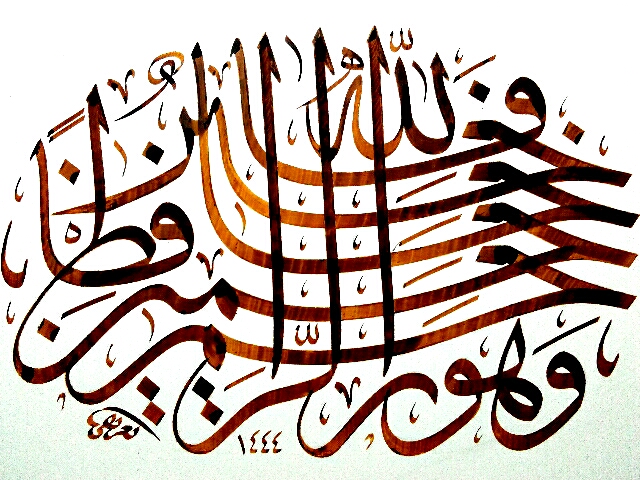 فَاللَّهُ خَيْرٌ حَافِظًا
وَهُوَ أَرْحَمُ الرَّاحِمِينَ
١٤٤٤